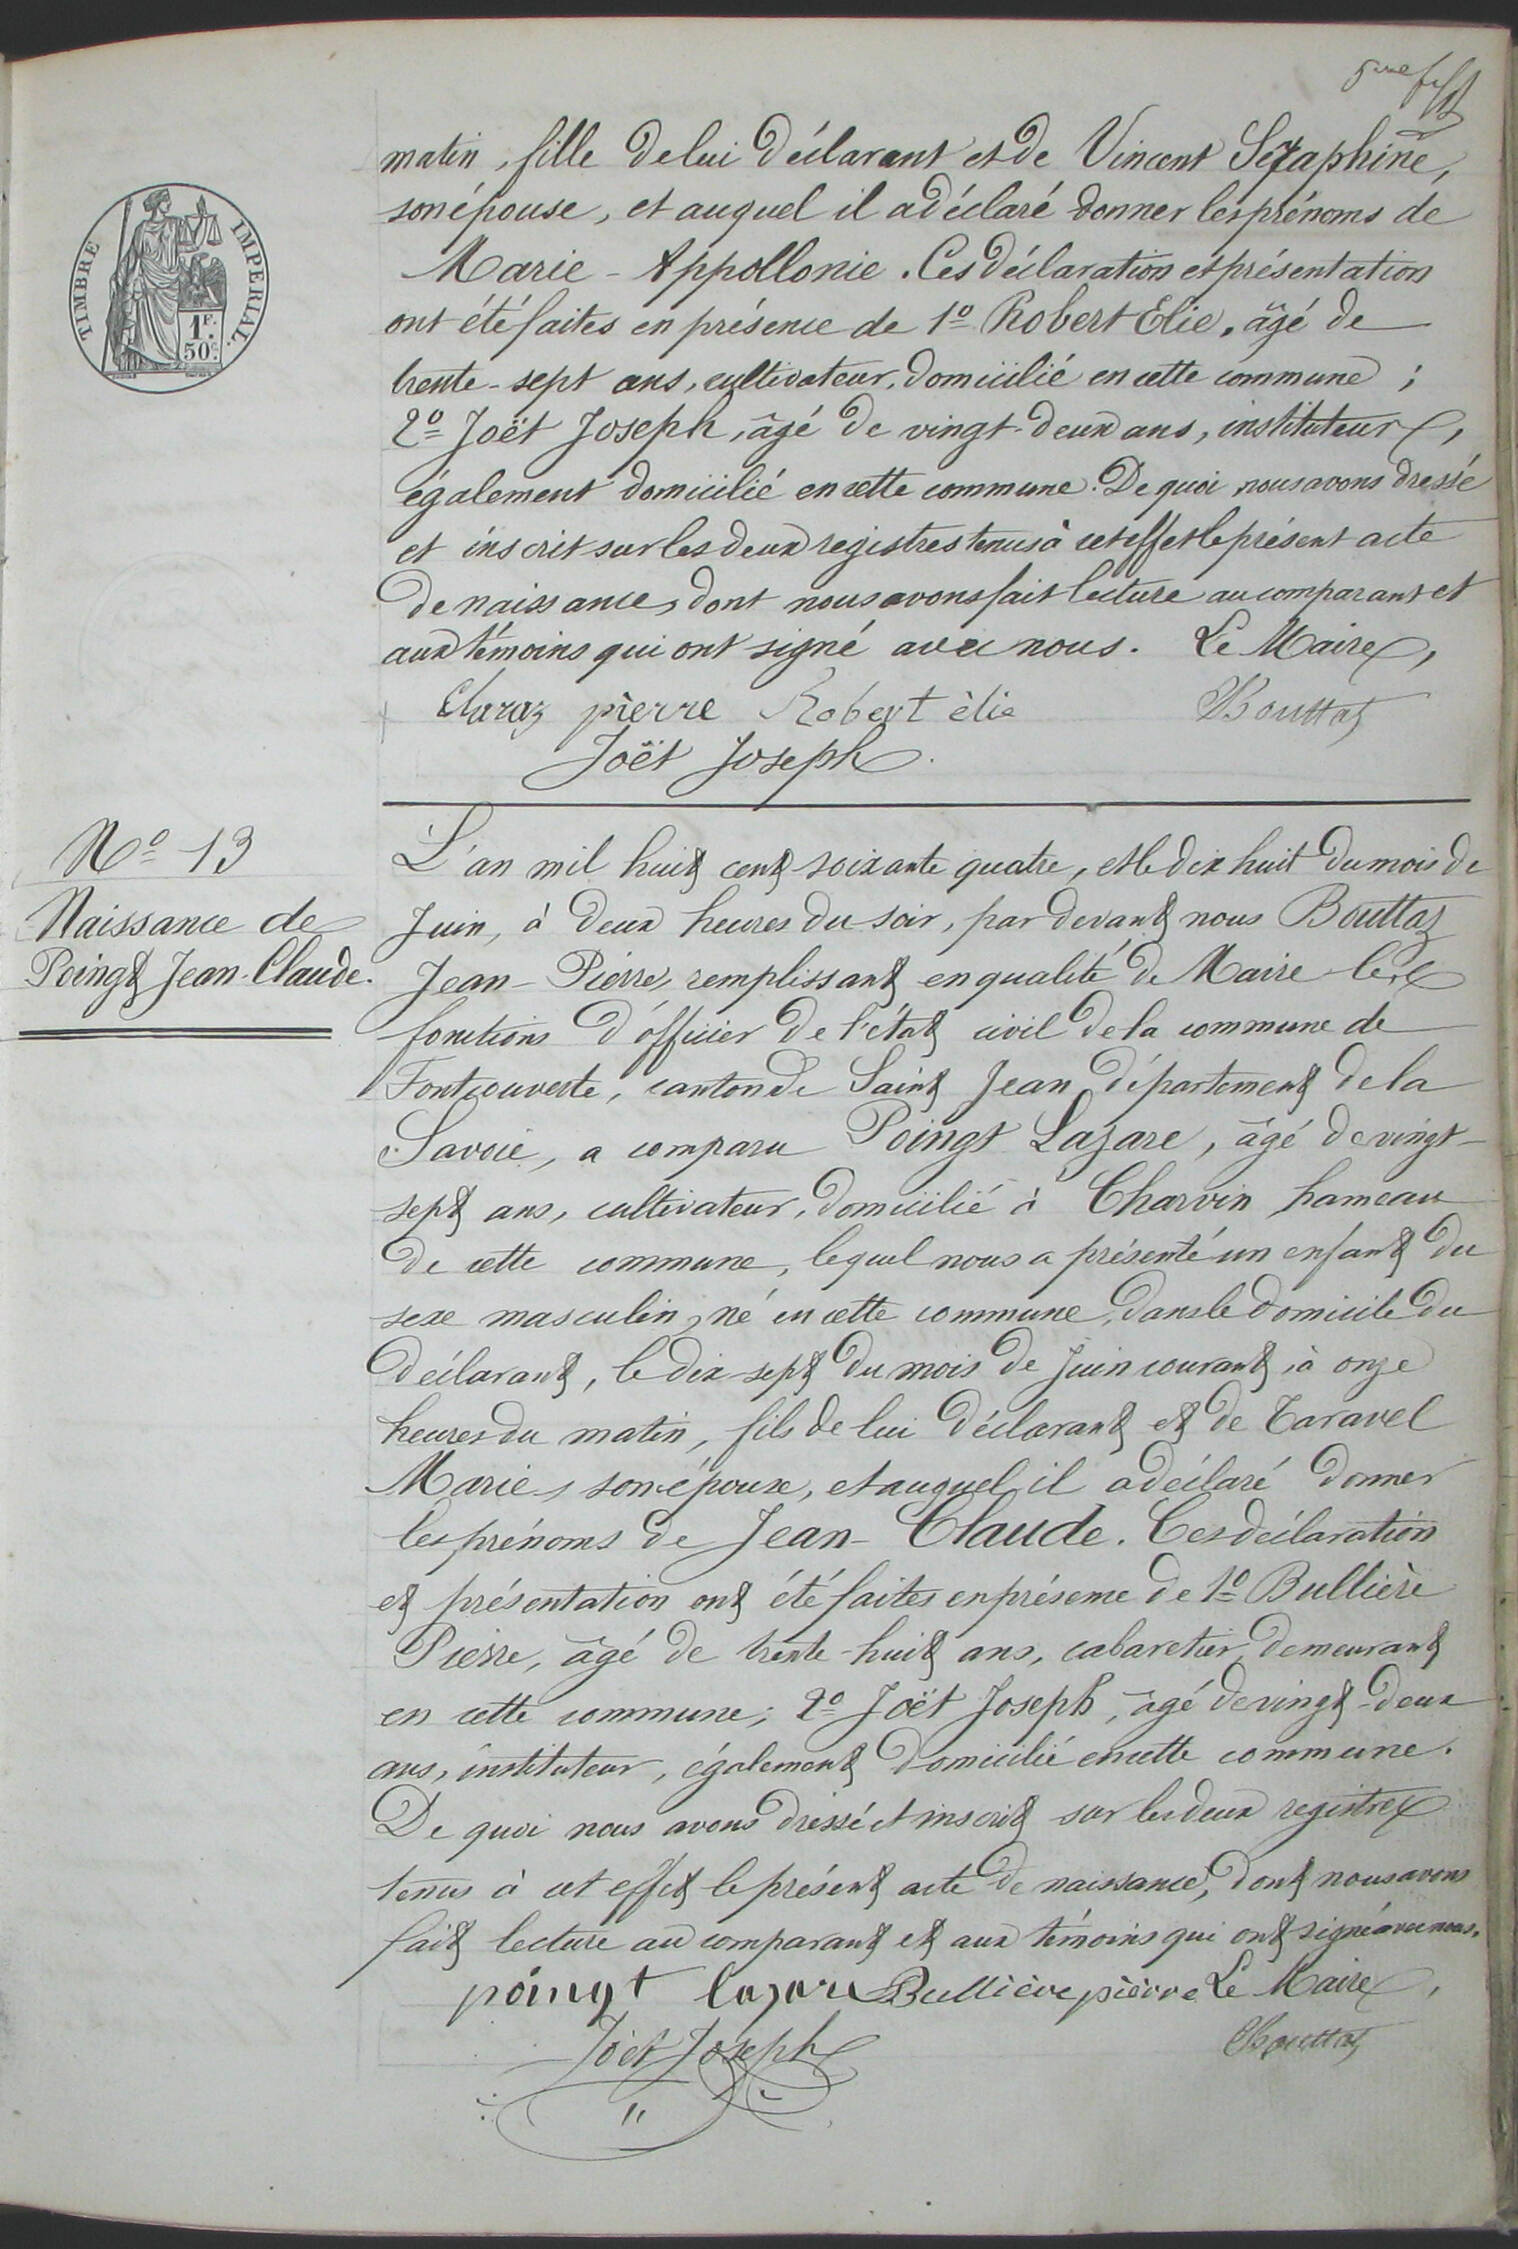 5me
matin, fille de lui déclarant et de Vincent Séraphine,
son épouse, et auquel il a déclaré donner les prénoms de
Marie-Appollonie. Ces déclaration et présentation
ont été faites en présence de 1º Robert Elie, âgé de
trente-sept ans, cultivateur, domicilié en cette commune ;
2º Joët Joseph, âgé de vingt-deux ans, instituteur,
également domicilié en cette commune. De quoi nous avons dressé
et inscrit sur les deux registres tenus à cet effet le présent acte
de naissance, dont nous avons fait lecture au comparant et
aux témoins qui ont signé avec nous. Le Maire,
Claraz pièrre Robert èlie Bouttaz
Joët Joseph.
TIMBRE IMPERIAL.
1F.
50c.
Nº 13
Naissance de
Poingt Jean-Claude.
L'an mil huit cent soixante quatre, et le dix huit du mois de
Juin, à deux heures du soir, par devant nous Bouttaz
Jean-Pierre, remplissant en qualité de Maire les
fonctions d'officier de l'état civil de la commune de
Fontcouverte, canton de Saint Jean, département de la
Savoie, a comparu Poingt Lazare, âgé de vingt-
sept ans, cultivateur, domicilié à Charvin hameau
de cette commune, lequel nous a présenté un enfant du
sexe masculin, né en cette commune, dans le domicile du
déclarant, le dix-sept du mois de Juin courant, à onze
heures du matin, fils de lui déclarant et de Taravel
Marie, son épouse, et auquel il a déclaré donner
les prénoms de Jean-Claude. Ces déclaration
et présentation ont été faites en présence de 1º Bullière
Pierre, âgé de trente-huit ans, cabaretier, demeurant
en cette commune ; 2º Joët Joseph, âgé de vingt-deux
ans, instituteur, également domicilié en cette commune.
De quoi nous avons dressé et inscrit sur les deux registres
tenus à cet effet le présent acte de naissance, dont nous avons
fait lecture au comparant et aux témoins qui ont signé avec nous.
poingt lazare Bullière pièrre Le Maire,
Joët Joseph Bouttaz